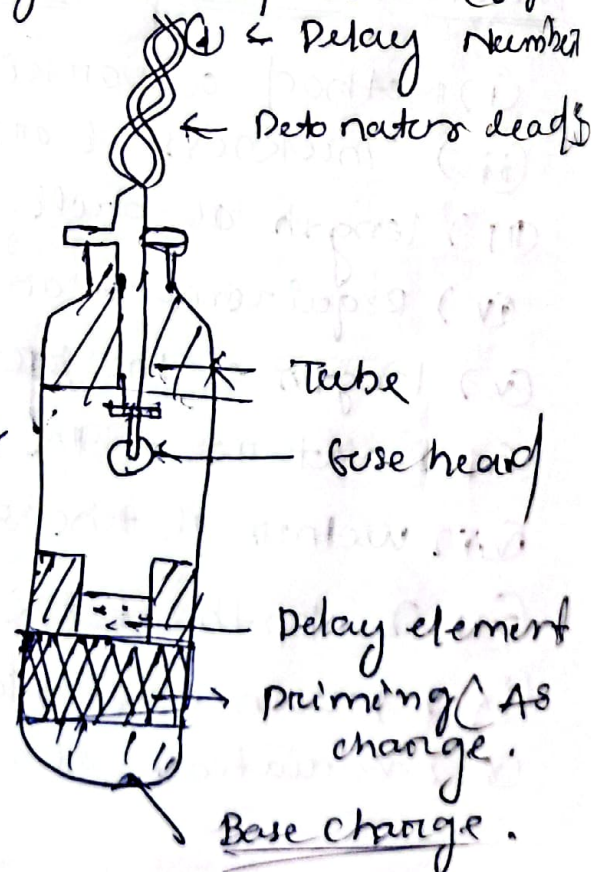 ① ← Delay Number
← Detonator deads
Tube
fuse heard
Delay element
Priming ( AS
charge.
Base charge.